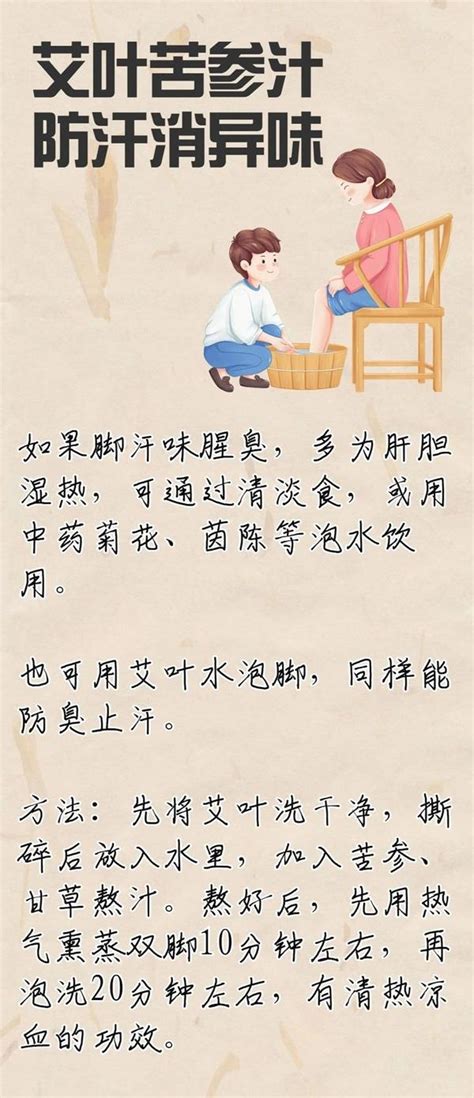 艾叶苦参汁
防汗消异味
如果脚汗味腥臭，多为肝胆
湿热，可通过清淡食，或用
中药菊花、茵陈等泡水饮
用。
也可用艾叶水泡脚，同样能
防臭止汗。
方法：先将艾叶洗干净，撕
碎后放入水里，加入苦参、
甘草熬汁。熬好后，先用热
气熏蒸双脚10分钟左右，再
泡洗20分钟左右，有清热凉
血的功效。